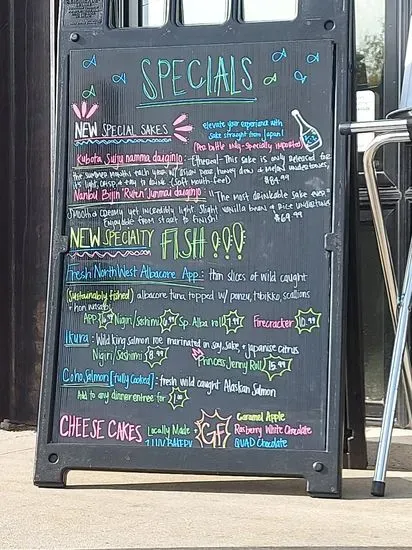 SPECIALS
NEW SPECIAL SAKES
elevate your experience with
sake straight from Japan!
(Per bottle only - specially imported)
Kubota Suiju namma daiginjo: "Ethereal" This sake is only released for
the summer months each year w/ Asian pear, honey dew & melon undertones,
its light, crisp & tiny to drink. (soft mouth feel) $84.99
Nanbu Bijin "Ruten" Junmai daiginjo: "The most drinkable sake ever"
Smooth & creamy yet incredibly light. Slight vanilla bean & rice undertones
Enjoyable from start to finish! $69.99
NEW SPECIALTY FISH!!!
Fresh NorthWest Albacore App.: thin slices of wild caught
(Sustainably fished) albacore tuna, topped w/ ponzu, tobikko, scallions
+ hon wasabi
App Nigiri/Sashimi 6.99 Sp. Alba roll Firecracker 10.99
Ikura: Wild king salmon roe marinated in soy, sake + japanise citrus
Nigiri Sashimi 8.99 Princess Jenny Roll 15.99
Coho Salmon [Fully Cooked]: fresh wild caught Alaskan Salmon
Add to any dinner entree for
CHEESE CAKES Locally Made + GF Caramel Apple
Rasberry White Chocolate
BAKERY QUAD Chocolate